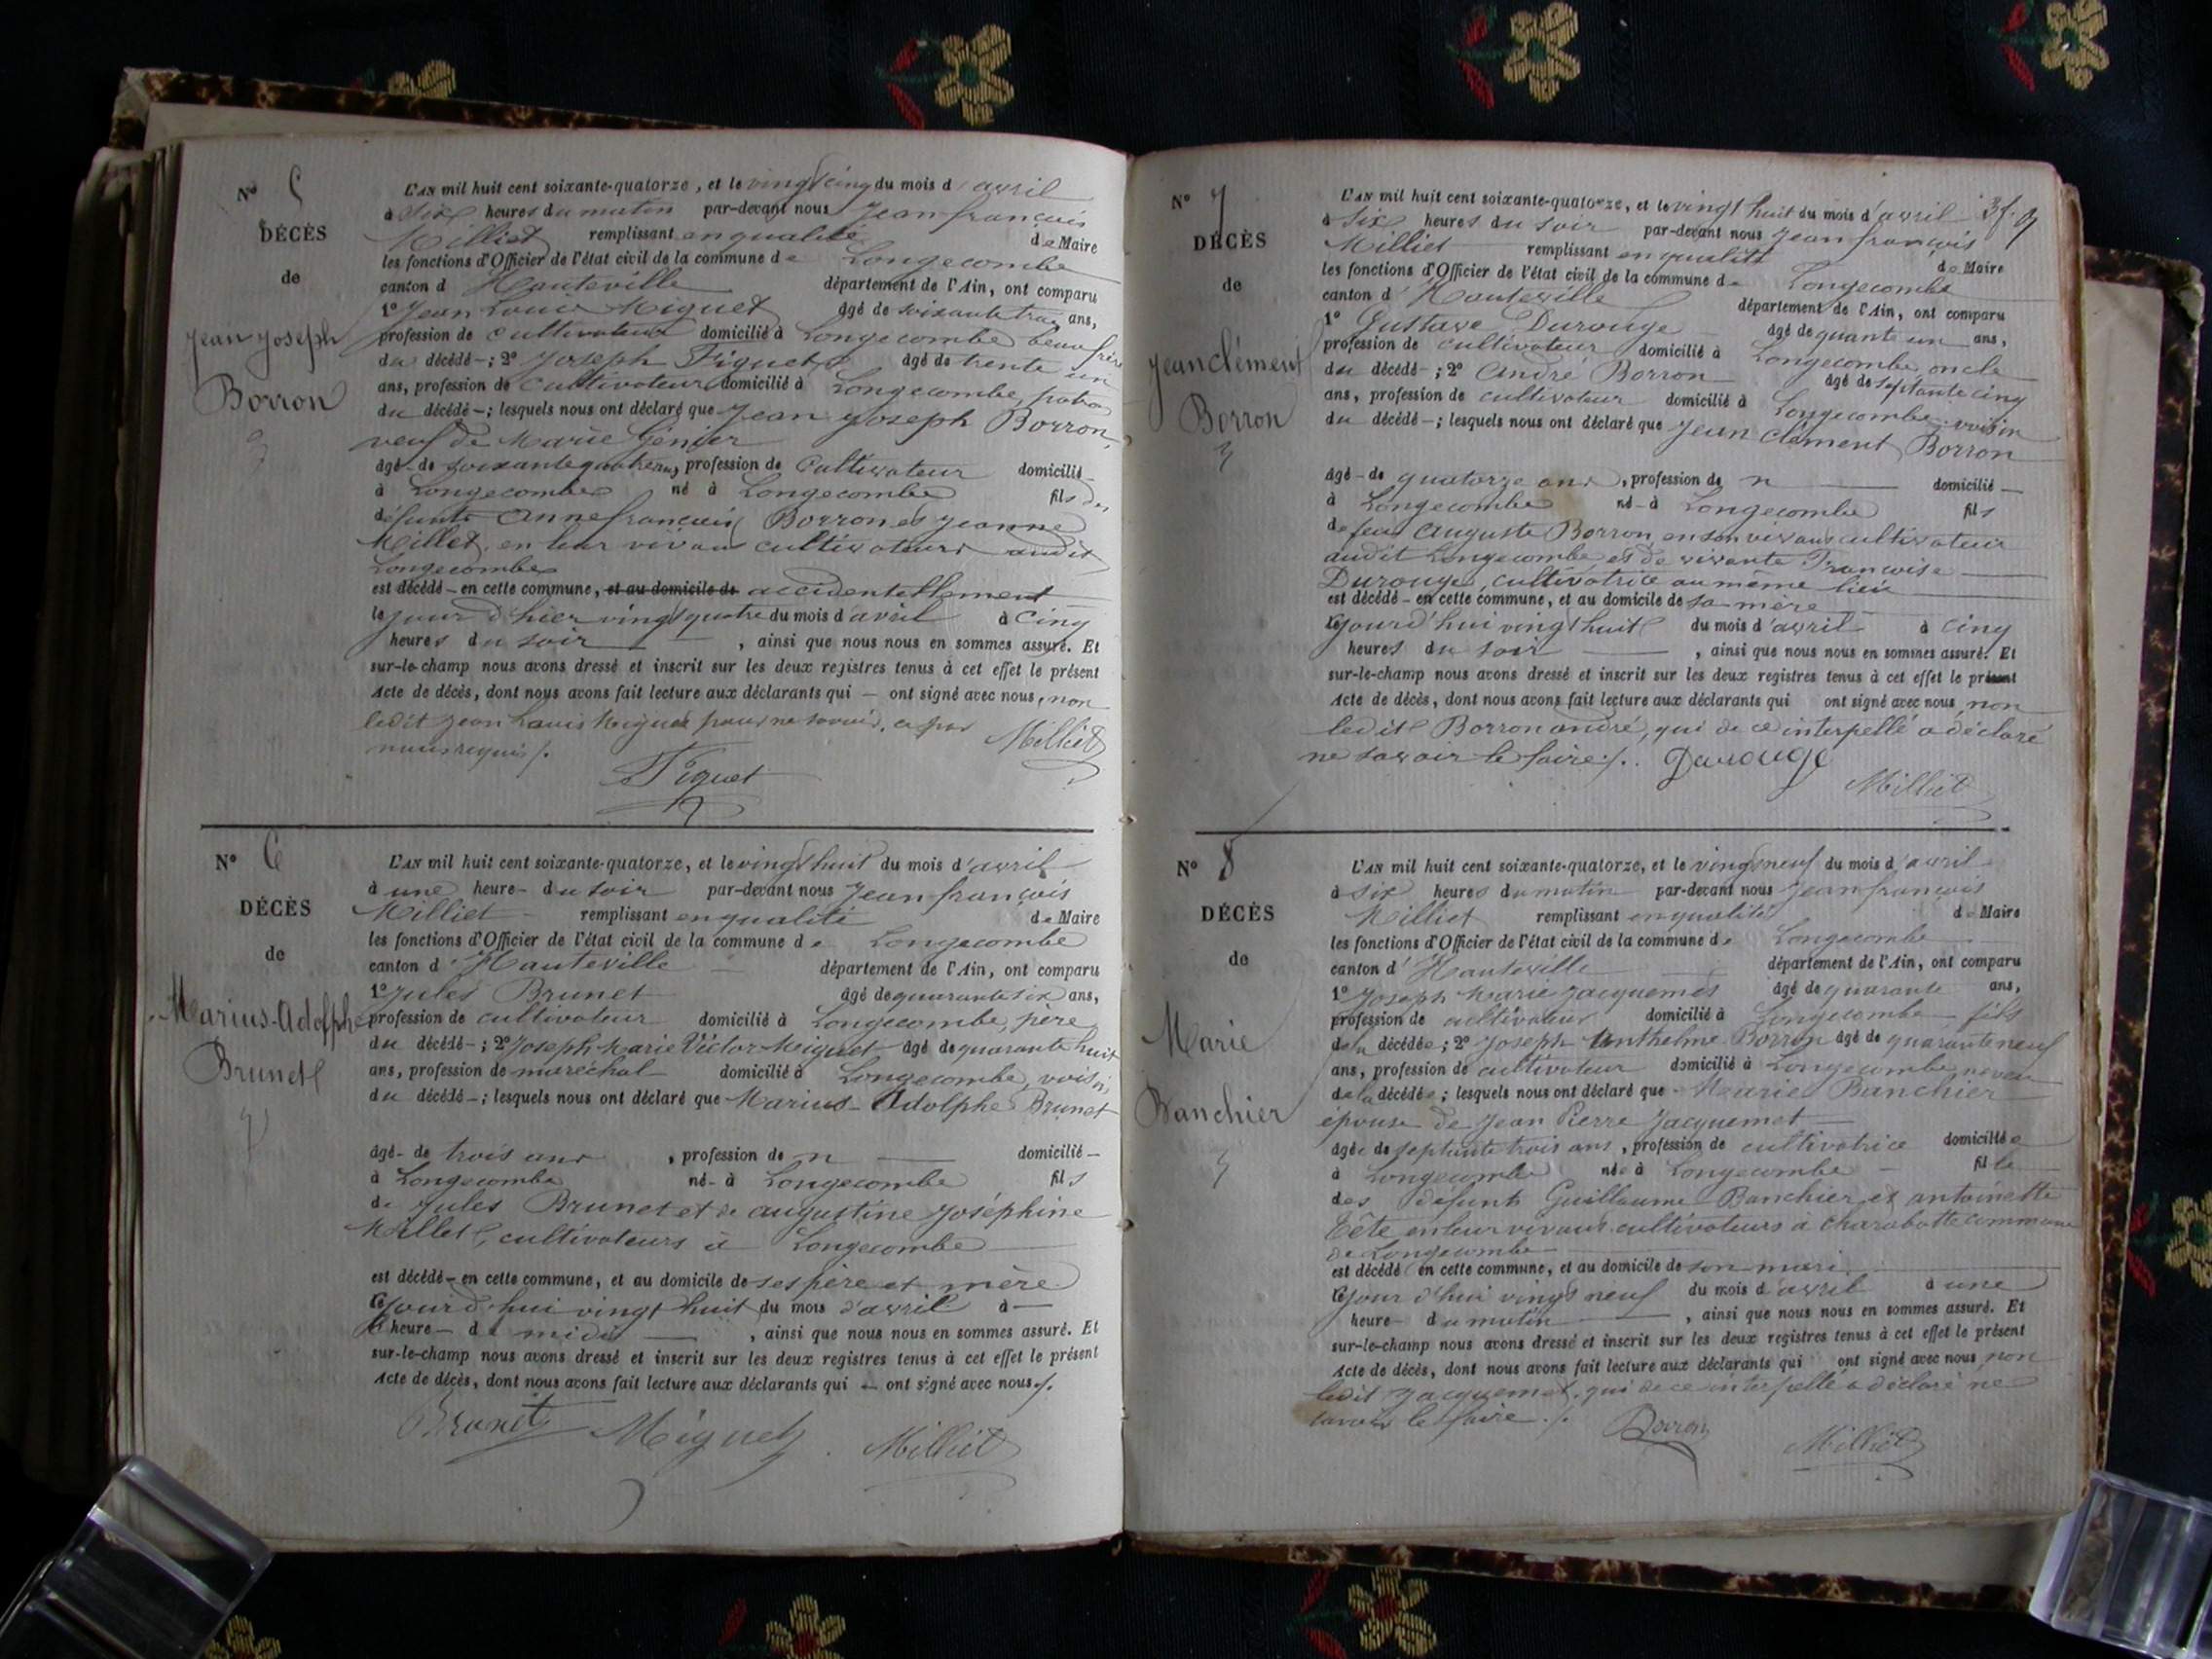 N° 5
DÉCÈS
de
Jean Joseph
Borron
L'AN mil huit cent soixante-quatorze, et le vingt cinq du mois d'avril
à six heures du matin par-devant nous Jean françois
Milliet remplissant en qualité de Maire
les fonctions d'Officier de l'état civil de la commune de Longecombe
canton d'Hauteville département de l'Ain, ont comparu
1° Jean Louis Miguet âgé de soixante trois ans,
profession de cultivateur domicilié à Longecombe beau frère
du décédé-; 2° Joseph Figuet âgé de trente un
ans, profession de cultivateur domicilié à Longecombe,
du décédé-; lesquels nous ont déclaré que Jean Joseph Borron,
veuf de Marie Génier
âgé-de soixante quatre ans, profession de cultivateur domicilié-
à Longecombe né à Longecombe fils des
défunts Anne françois Borron et Jeanne
Millet, en leur vivant cultivateurs audit
Longecombe
est décédé-en cette commune, et au domicile de accidentellement
le jour d'hier vingt quatre du mois d'avril à cinq
heures du soir, ainsi que nous nous en sommes assuré. Et
sur-le-champ nous avons dressé et inscrit sur les deux registres tenus à cet effet le présent
Acte de décès, dont nous avons fait lecture aux déclarants qui — ont signé avec nous, non
ledit Jean Louis Miguet pour ne savoir, ce par Milliet
nous requis ./.
Figuet
N° 6
DÉCÈS
de
Marius-Adolphe
Brunet
L'AN mil huit cent soixante-quatorze, et le vingt huit du mois d'avril
à une heure- du soir par-devant nous Jean françois
Milliet remplissant en qualité de Maire
les fonctions d'Officier de l'état civil de la commune de Longecombe
canton d'Hauteville département de l'Ain, ont comparu
1° Jules Brunet âgé de quarante six ans,
profession de cultivateur domicilié à Longecombe, père
du décédé-; 2° Joseph Marie Victor Miguet âgé de quarante huit
ans, profession de maréchal domicilié à Longecombe, voisin
du décédé-; lesquels nous ont déclaré que Marius-Adolphe Brunet
âgé-de trois ans, profession de n — domicilié-
à Longecombe né-à Longecombe fils
de Jules Brunet et de augustine Joséphine
Millet, cultivateurs à Longecombe
est décédé-en cette commune, et au domicile de ses père et mère
cejourd'hui vingt huit du mois d'avril à —
heure- de midi, ainsi que nous nous en sommes assuré. Et
sur-le-champ nous avons dressé et inscrit sur les deux registres tenus à cet effet le présent
Acte de décès, dont nous avons fait lecture aux déclarants qui — ont signé avec nous ./.
Brunet Miguet Milliet
N° 7
DÉCÈS
de
Jean clément
Borron
L'AN mil huit cent soixante-quatorze, et le vingt huit du mois d'avril
à six heures du soir par-devant nous Jean françois
Milliet remplissant en qualité de Maire
les fonctions d'Officier de l'état civil de la commune de Longecombe
canton d'Hauteville département de l'Ain, ont comparu
1° Gustave Durouge âgé de quante un ans,
profession de cultivateur domicilié à Longecombe, oncle
du décédé-; 2° André Borron âgé de septante cinq
ans, profession de cultivateur domicilié à Longecombe voisin
du décédé-; lesquels nous ont déclaré que Jean clément Borron
âgé-de quatorze ans, profession de n — domicilié-
à Longecombe né-à Longecombe fils
de feu Auguste Borron, en son vivant cultivateur
audit Longecombe et de vivante Françoise
Durouge, cultivatrice au même lieu
est décédé-en cette commune, et au domicile de sa mère
cejourd'hui vingt huit du mois d'avril à cinq
heures du soir, ainsi que nous nous en sommes assuré. Et
sur-le-champ nous avons dressé et inscrit sur les deux registres tenus à cet effet le présent
Acte de décès, dont nous avons fait lecture aux déclarants qui ont signé avec nous, non
ledit Borron andré, qui de ce interpellé a déclaré
ne savoir le faire ./. Durouge
Milliet
N° 8
DÉCÈS
de
Marie
Banchier
L'AN mil huit cent soixante-quatorze, et le vingt neuf du mois d'avril
à six heures du matin par-devant nous Jean françois
Milliet remplissant en qualité de Maire
les fonctions d'Officier de l'état civil de la commune de Longecombe
canton d'Hauteville département de l'Ain, ont comparu
1° Joseph Marie Jacquemet âgé de quarante ans,
profession de cultivateur domicilié à Longecombe fils
de la décédée; 2° Joseph Anthelme Borron âgé de quarante neuf
ans, profession de cultivateur domicilié à Longecombe neveu
de la décédée; lesquels nous ont déclaré que Marie Banchier
épouse de Jean Pierre Jacquemet
âgée de septante trois ans, profession de cultivatrice domiciliée
à Longecombe née à Longecombe fille
des défunts Guillaume Banchier et antoinette
Tête en leur vivant cultivateurs à Charabotte commune
de Longecombe
est décédé en cette commune, et au domicile de son mari
cejour d'hui vingt neuf du mois d'avril à une
heure- du matin, ainsi que nous nous en sommes assuré. Et
sur-le-champ nous avons dressé et inscrit sur les deux registres tenus à cet effet le présent
Acte de décès, dont nous avons fait lecture aux déclarants qui ont signé avec nous non
ledit Jacquemet, qui de ce interpellé a déclaré ne
savoir le faire ./. Borron Milliet